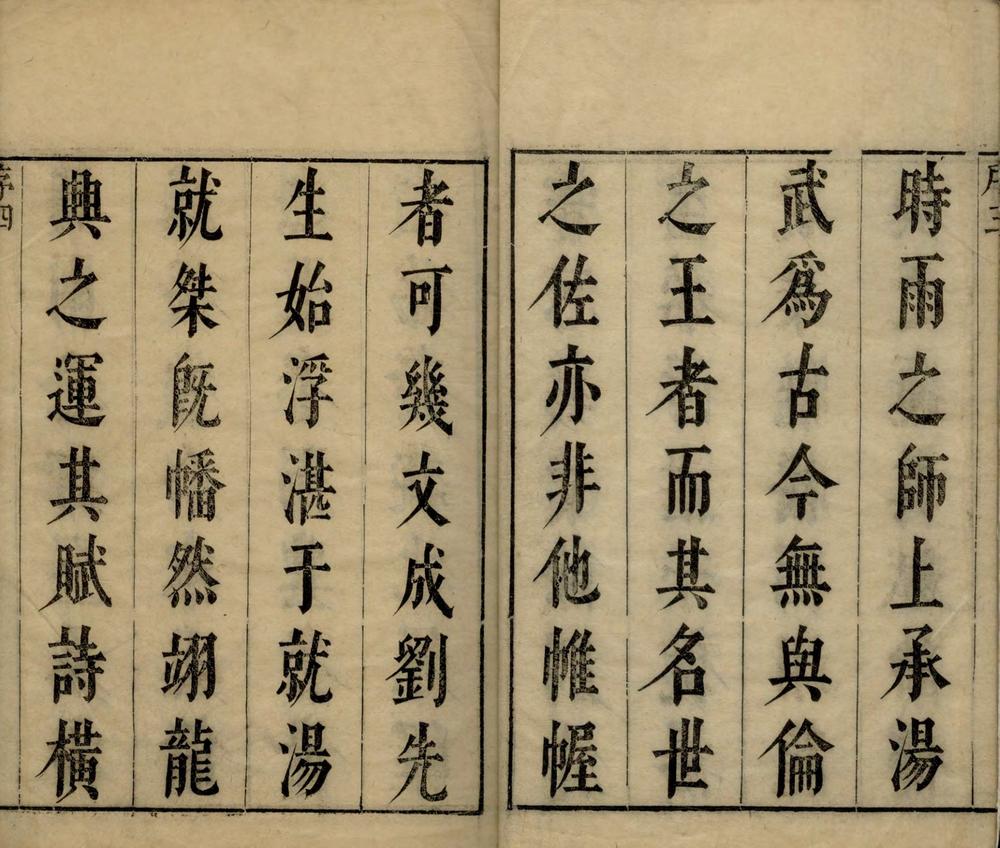 時雨之師上承湯
武爲古今無與倫
之王者而其名世
之佐亦非他帷幄
者可幾文成劉先
生始浮湛于就湯
就桀旣幡然翊龍
興之運其賦詩橫
序四